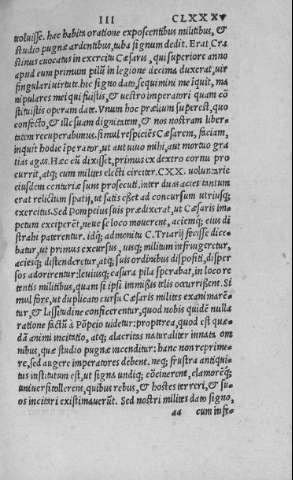 III CLXXXV
uoluisse. hac habita oratione exposcentibus militibus, &
studio pugnæ ardentibus, tuba signum dedit. Erat Cra
stinus euocatus in exercitu Cæsaris, qui superiore anno
apud eum primum pilũ in legione decima duxerat, uir
singulari uirtute. hic signo dato, sequimini me iquit, ma
nipulares mei qui fuistis, & uestro imperatori quam cõ
stituistis operam date. Vnum hoc prælium superest, quo
confecto, & ille suam dignitatem, & nos nostram liber=
tatem recuperabimus. simul respiciẽs Cæsarem, faciam,
inquit hodie iperator, ut aut uiuo mihi, aut mortuo gra
tias agas. Hæc cũ dixisset, primus ex dextro cornu pro
currit, atq; eum milites electi circiter.CXX. uoluntarie
eiusdem centuriæ sunt prosecuti. inter duas acies tantum
erat relictum spatij, ut satis esset ad concursum utriusq;
exercitus. Sed Pompeius suis prædixerat, ut Cæsaris im=
petum exciperẽt, neue se loco mouerent, aciemq; eius di
strahi paterentur. idq; admonitu C. Triarij fecisse dice=
batur, ut primus excursus, uisq; militum infringeretur,
aciesq; distenderetur, atq; suis ordinibus dispositi, disper
sos adorirentur: leuiusq; casura pila sperabat, in loco re
tentis militibus, quam si ipsi immissis telis occurrissent. Si
mul fore, ut duplicato cursu Cæsaris milites exanimarẽ=
tur, & lassitudine conficerentur, quod nobis quidẽ nulla
ratione factũ à Põpeio uidetur: propterea, quod est quæ=
dã animi incitatio, atq; alacritas naturaliter innata om
nibus, quæ studio pugnæ incenditur: hanc non reprime=
re, sed augere imperatores debent. neq; frustra antiqui=
tus institutum est, ut signa undiq; cõcinerent, clamorẽq;
uniuersi tollerent, quibus rebus, & hostes terreri, & su=
os incitari existimauerũt. Sed nostri milites dato signo,
aa cum infe=